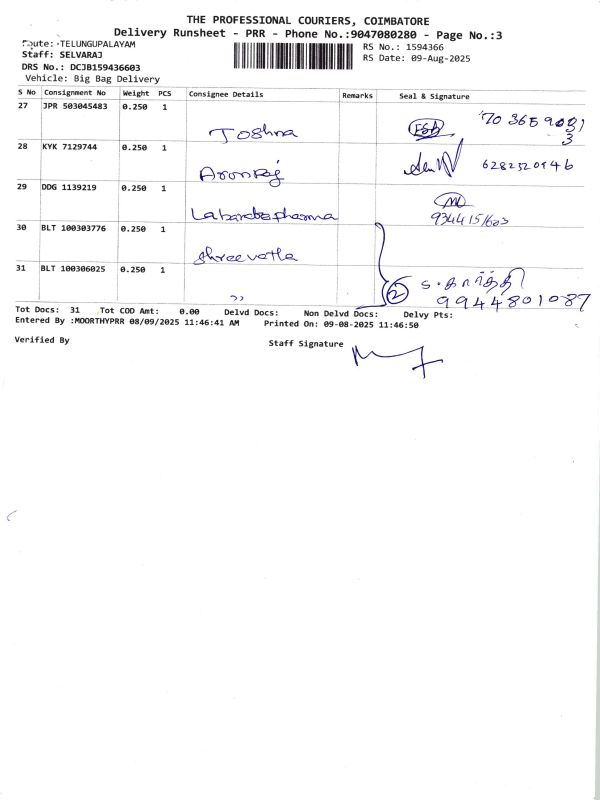 THE PROFESSIONAL COURIERS, COIMBATORE
Delivery Runsheet - PRR - Phone No.:9047080280 - Page No.:3
Route: TELUNGUPALAYAM
Staff: SELVARAJ
RS No.: 1594366
RS Date: 09-Aug-2025
DRS No.: DCJB159436603
Vehicle: Big Bag Delivery
S No Consignment No Weight PCS Consignee Details Remarks Seal & Signature
27 JPR 503045483 0.250 1
Joshna
28 KYK 7129744 0.250 1
Arunraj 6282520946
29 DDG 1139219 0.250 1
30 BLT 100303776 0.250 1
Shreevatla
31 BLT 100306025 0.250 1
,, 2 S. கார்த்தி
9944801087
Tot Docs: 31 Tot COD Amt: 0.00 Delvd Docs: Non Delvd Docs: Delvy Pts:
Entered By :MOORTHYPRR 08/09/2025 11:46:41 AM Printed On: 09-08-2025 11:46:50
Verified By Staff Signature